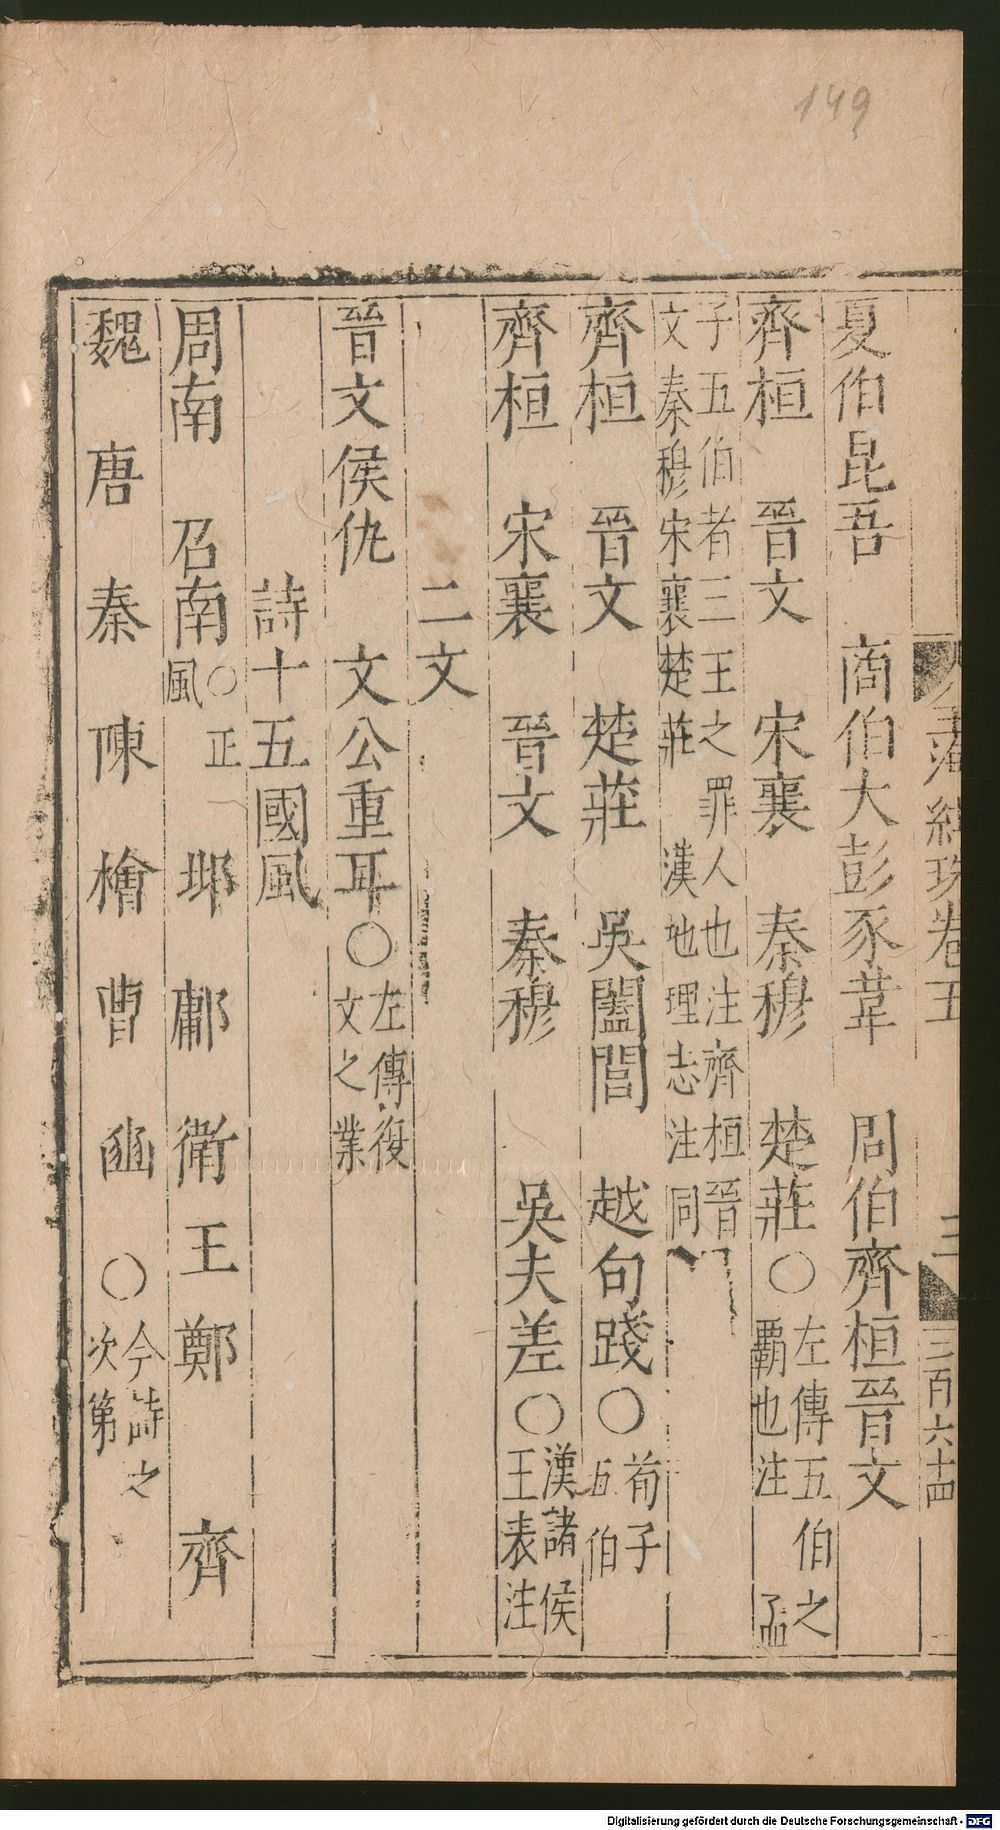 149
小學紺珠卷五
三
三百六十四
夏伯昆吾 商伯大彭豕韋 周伯齊桓晉文
齊桓 晉文 宋襄 秦穆 楚莊○左傳五伯之霸也注 孟
子五伯者三王之罪人也注齊桓晉文秦穆宋襄楚莊 漢地理志注同
齊桓 晉文 楚莊 吳闔閭 越句踐○荀子五伯
齊桓 宋襄 晉文 秦穆 吳夫差○漢諸侯王表注
二文
晉文侯仇 文公重耳○左傳復文之業
詩十五國風
周南 召南○正風 邶 鄘 衛 王 鄭 齊
魏 唐 秦 陳 檜 曹 豳 ○今詩之次第
Digitalisierung gefördert durch die Deutsche Forschungsgemeinschaft - DFG